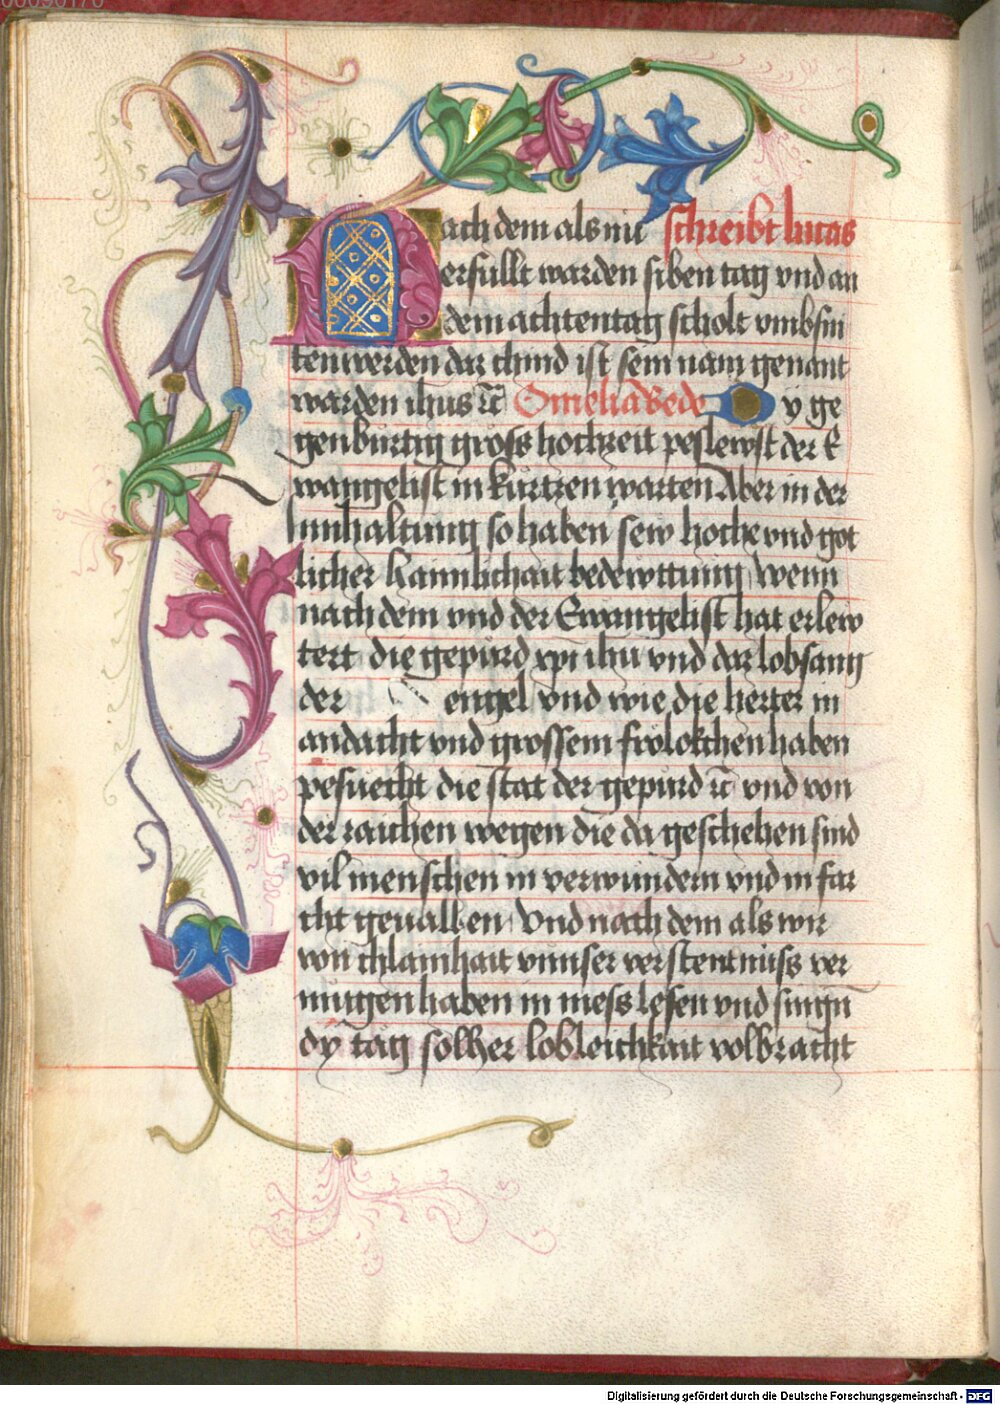 00090170
Nach dem als nu schreibt lucas
erfullt warden siben tag vnd an
dem achtentag scholt vmbsni
ten werden daz chind ist sein nam genant
warden ihus ꝛc̄ Omelia Bede Dy ge
genburtig gross hochzeit peslewst der E
wangelist in kurtzen warten Aber in der
Innhaltung so haben sew hoche vnd got
licher Haimlichait bedewttung Wenn
nach dem vnd der Ewangelist hat erlew
tert die gepurd xpi ihu vnd daz lobsang
der engel vnd wie die herter in
andacht vnd grossem frolokchen haben
pesuecht die stat der gepurd ꝛc̄ vnd von
der zaichen wegen die da geschehen sind
vil menschen in verwundern vnd in far
cht geuallen Vnd nach dem als wir
von chlainhait vnnser verstentnüss ver
mugen haben in mess lesen vnd singn̄
dy tag solher lobleichkait volbracht
Digitalisierung gefördert durch die Deutsche Forschungsgemeinschaft - DFG